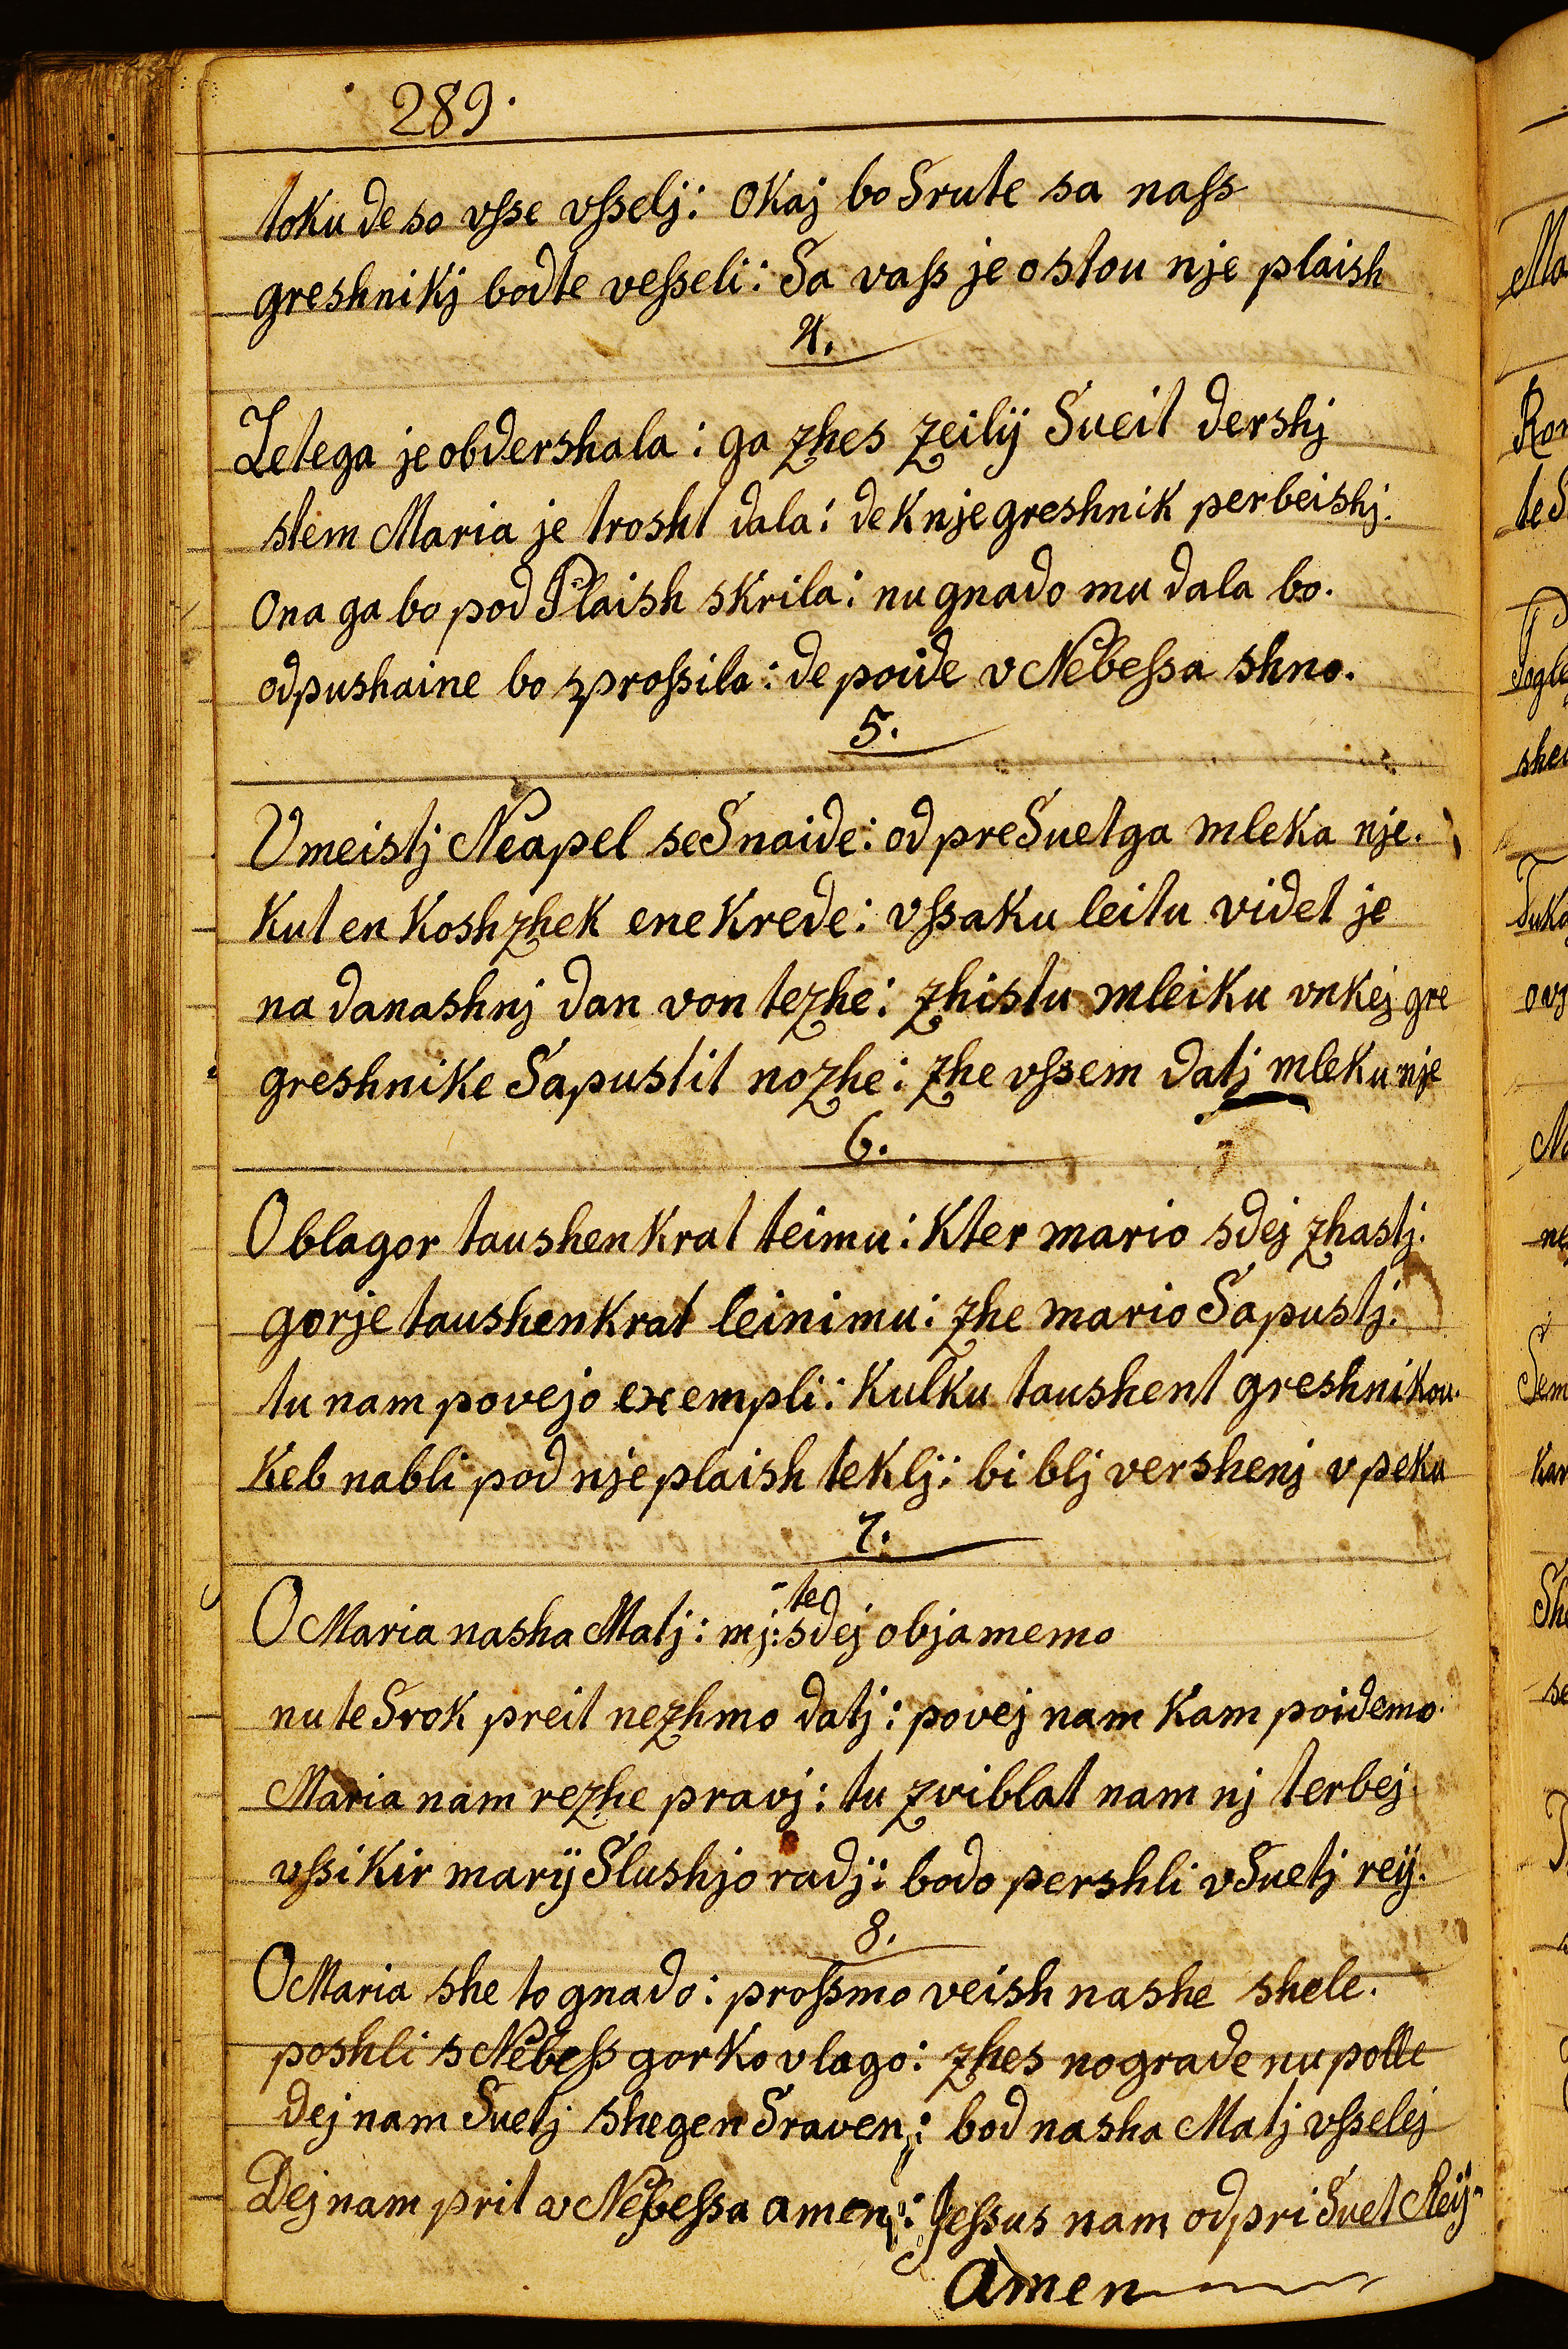 289.
toku de so vſse vſselj: Okaj bo Srute sa naſs
greshnikj bodte veſseli: Sa vaſs je ostou nje plaish
4.
Letega je obdershala: ga zhes zeilÿ Sveit dershj
stem Maria je trosht dala: de k nje greshnik perbeishj.
Ona ga bo pod Plaish skrila: nu gnado mu dala bo.
odpushaine bo sproſsila: de poide v Nebeſsa shno.
5.
V meistj Neapel se Snaide: od preSvetga mleka nje.
Kut en Koshzhek ene Krede: vſsaku leitu videt je
na danashnj dan von tezhe: zhistu mleiku vnkej gre
greshnike Sapustit nozhe: zhe vſsem datj mleku nje
6.
O blagor taushenkrat teimu: Kter mario sdej zhastj.
gorje taushenkrat leinimu: zhe mario Sapustj.
tu nam povejo exempli: Kulku taushent greshnikou.
Keb nabli pod nje plaish teklj: bi blj vershenj v peku
7.
O Maria nasha Matj: mj: te sdej objamemo
nu te Srok preit nezhmo datj: povej nam kam poidemo.
Maria nam rezhe pravj: tu zviblat nam nj terbej
vſsi Kir marÿ Slushjo radj: bodo pershli v Svetj reÿ.
8.
O Maria she to gnado: proſsmo veish nashe shele.
poshli s Nebeſs gorko vlago: zhes nograde nu polle
dej nam Svetj shegen Sraven: bod nasha Matj vſselej
Dej nam prit v Nebeſsa amen: Jeſsus nam odpri Svet Reÿ
Amen